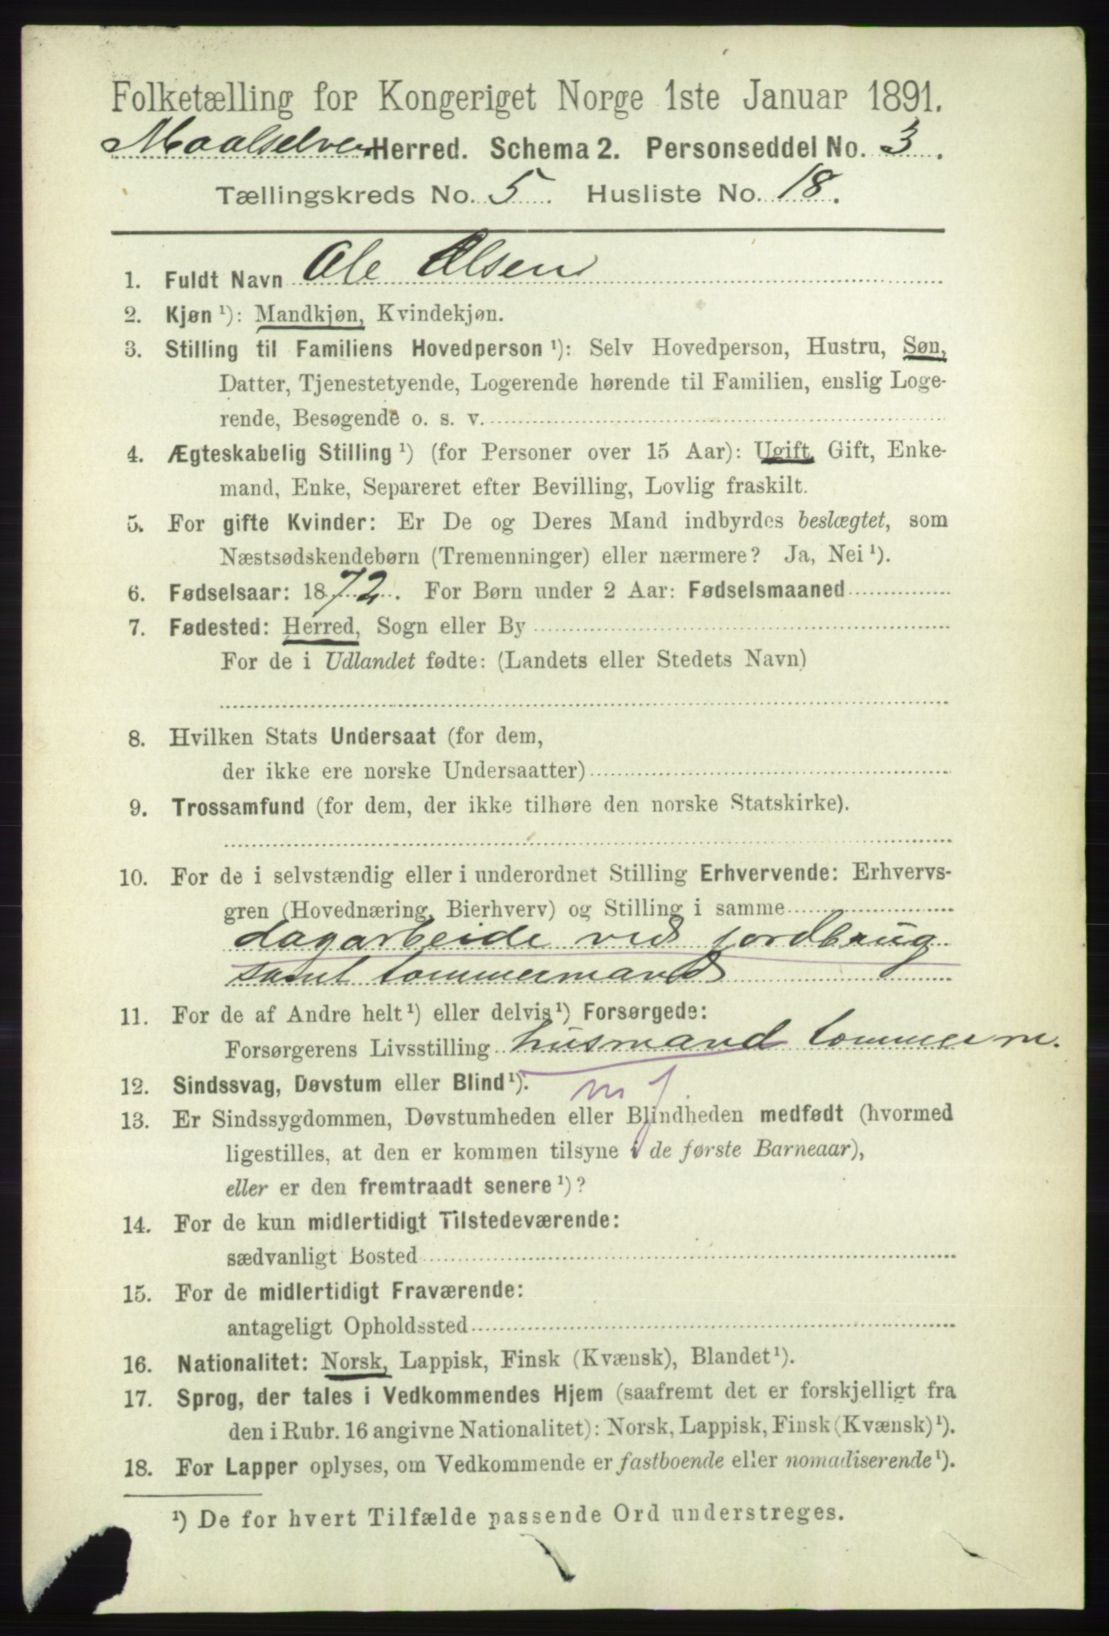 Folketælling for Kongeriget Norge 1ste Januar 1891.
Maalselven Herred. Schema 2. Personseddel No. 3.
Tællingskreds No. 5. Husliste No. 18.
1. Fuldt Navn Ole Olsen
2. Kjøn ¹): Mandkjøn, Kvindekjøn.
3. Stilling til Familiens Hovedperson ¹): Selv Hovedperson, Hustru, Søn,
Datter, Tjenestetyende, Logerende hørende til Familien, enslig Loge-
rende, Besøgende o. s. v.
4. Ægteskabelig Stilling ¹) (for Personer over 15 Aar): Ugift, Gift, Enke-
mand, Enke, Separeret efter Bevilling, Lovlig fraskilt.
5. For gifte Kvinder: Er De og Deres Mand indbyrdes beslægtet, som
Næstsødskendebørn (Tremenninger) eller nærmere? Ja, Nei ¹).
6. Fødselsaar: 1872. For Børn under 2 Aar: Fødselsmaaned
7. Fødested: Herred, Sogn eller By
For de i Udlandet fødte: (Landets eller Stedets Navn)
8. Hvilken Stats Undersaat (for dem,
der ikke ere norske Undersaatter)
9. Trossamfund (for dem, der ikke tilhøre den norske Statskirke).
10. For de i selvstændig eller i underordnet Stilling Erhvervende: Erhvervs-
gren (Hovednæring, Bierhverv) og Stilling i samme
dagarbeide ved jordbrug
samt tømmermand
11. For de af Andre helt ¹) eller delvis ¹) Forsørgede:
Forsørgerens Livsstilling husmand tømmerm.
12. Sindssvag, Døvstum eller Blind ¹).
mf
13. Er Sindssygdommen, Døvstumheden eller Blindheden medfødt (hvormed
ligestilles, at den er kommen tilsyne i de første Barneaar),
eller er den fremtraadt senere ¹)?
14. For de kun midlertidigt Tilstedeværende:
sædvanligt Bosted
15. For de midlertidigt Fraværende:
antageligt Opholdssted
16. Nationalitet: Norsk, Lappisk, Finsk (Kvænsk), Blandet ¹).
17. Sprog, der tales i Vedkommendes Hjem (saafremt det er forskjelligt fra
den i Rubr. 16 angivne Nationalitet): Norsk, Lappisk, Finsk (Kvænsk) ¹).
18. For Lapper oplyses, om Vedkommende er fastboende eller nomadiserende ¹).
¹) De for hvert Tilfælde passende Ord understreges.